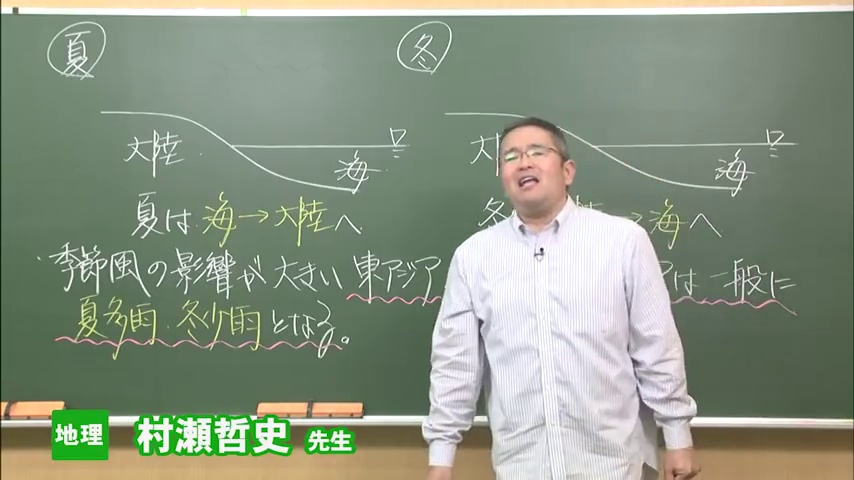 夏
冬
大陸
海
大
海
夏は 海→大陸へ
冬 →海へ
・季節風の影響が大きい東アジア は一般に
夏多雨、冬少雨となる。
地理 村瀬哲史 先生